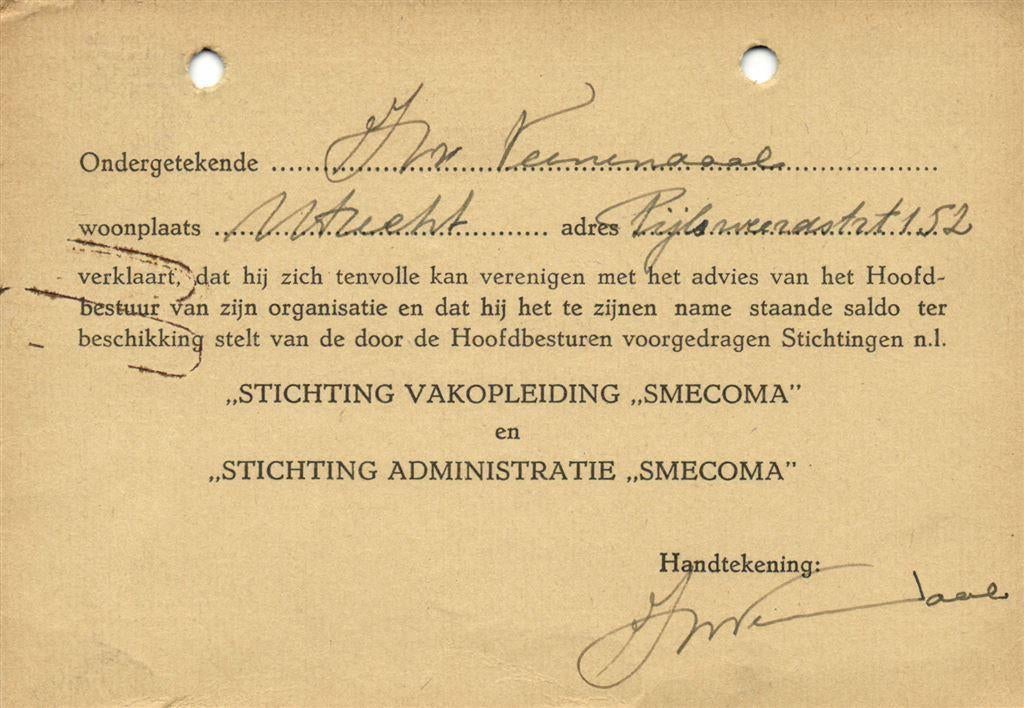 Ondergetekende J v Veenendaal
woonplaats Utrecht adres Rijksweerdstrt 152
verklaart, dat hij zich tenvolle kan verenigen met het advies van het Hoofd-
bestuur van zijn organisatie en dat hij het te zijnen name staande saldo ter
beschikking stelt van de door de Hoofdbesturen voorgedragen Stichtingen n.l.
„STICHTING VAKOPLEIDING „SMECOMA”
en
„STICHTING ADMINISTRATIE „SMECOMA”
Handtekening: